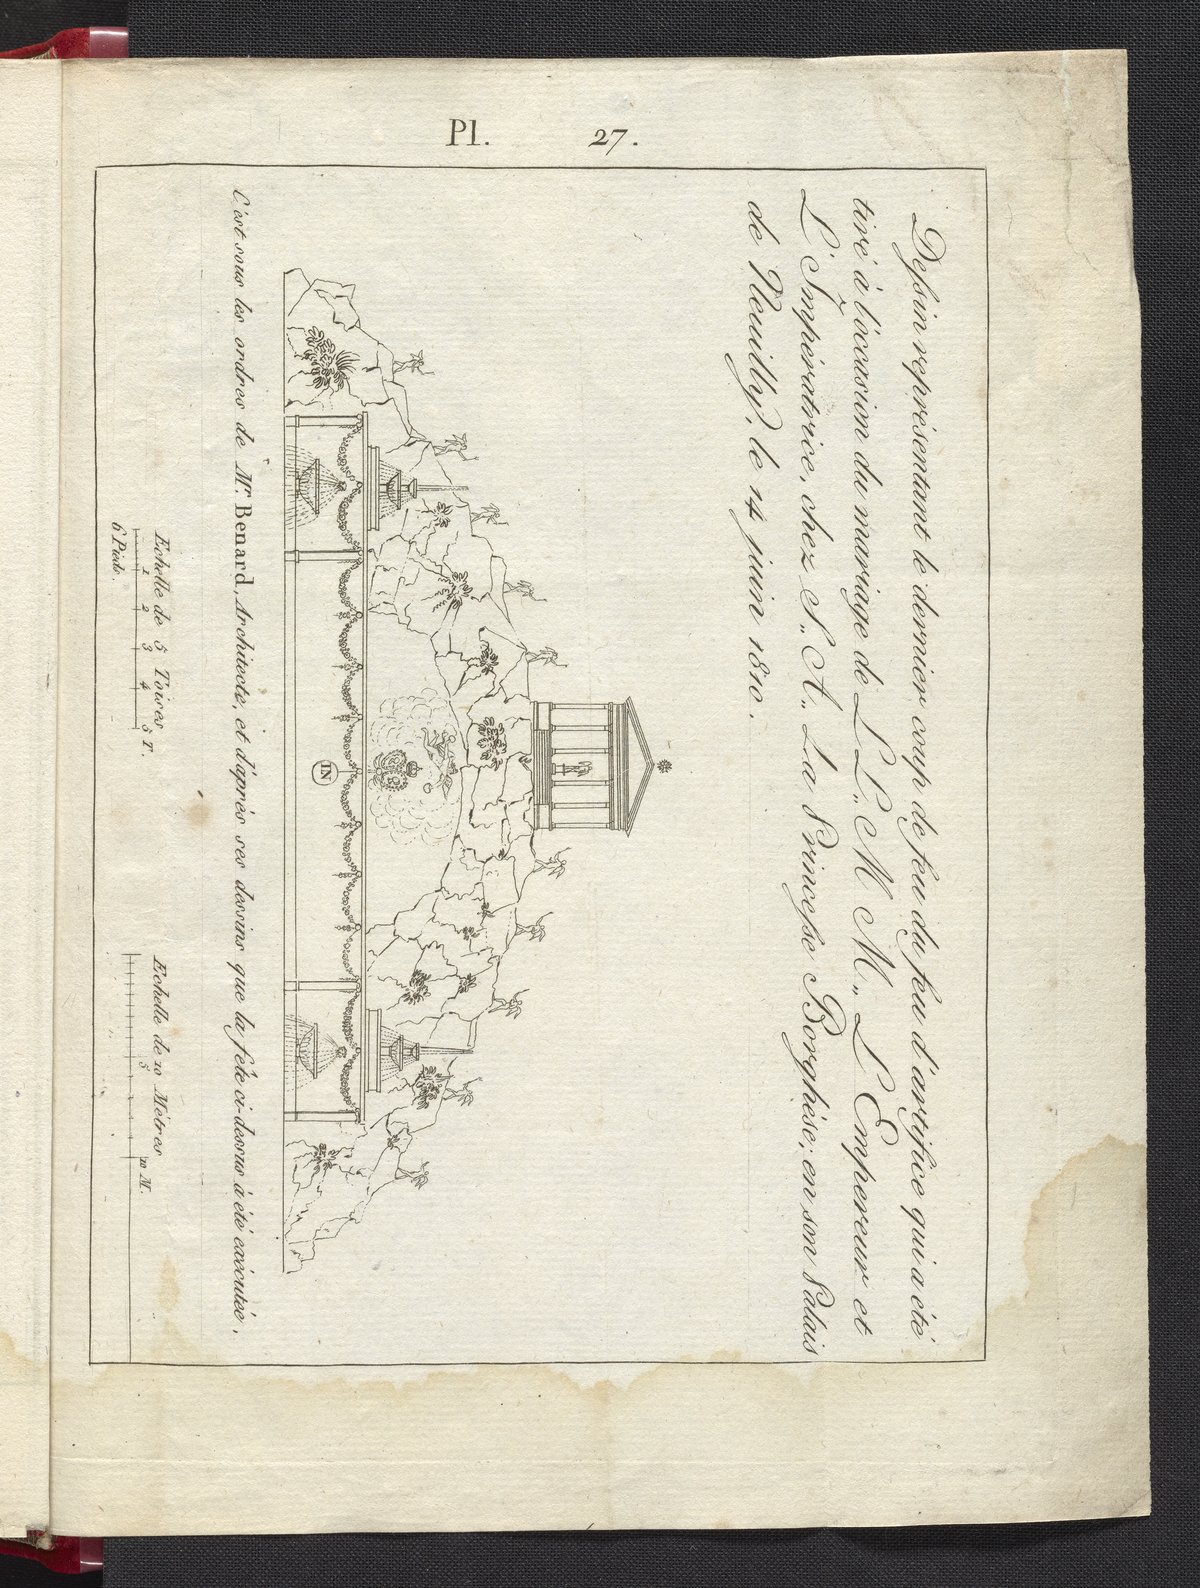 Pl. 27.
Dessin représentant le dernier coup de feu du feu d'artifice qui a été
tiré à l'occasion du mariage de L L,, M M,, L'Empereur et
L'Impératrice, chez S,, A,, La Princesse Borghèse; en son Palais
de Neuilly, le 14 juin 1810.
IN
C'est sous les ordres de Mr. Benard, Architecte, et d'après ses dessins que la fête ci-dessus à été exécutée.
Echelle de 5 Toises
1 2 3 4 5 T.
6 Pieds.
Echelle de 10 Mètres
5 10 M.